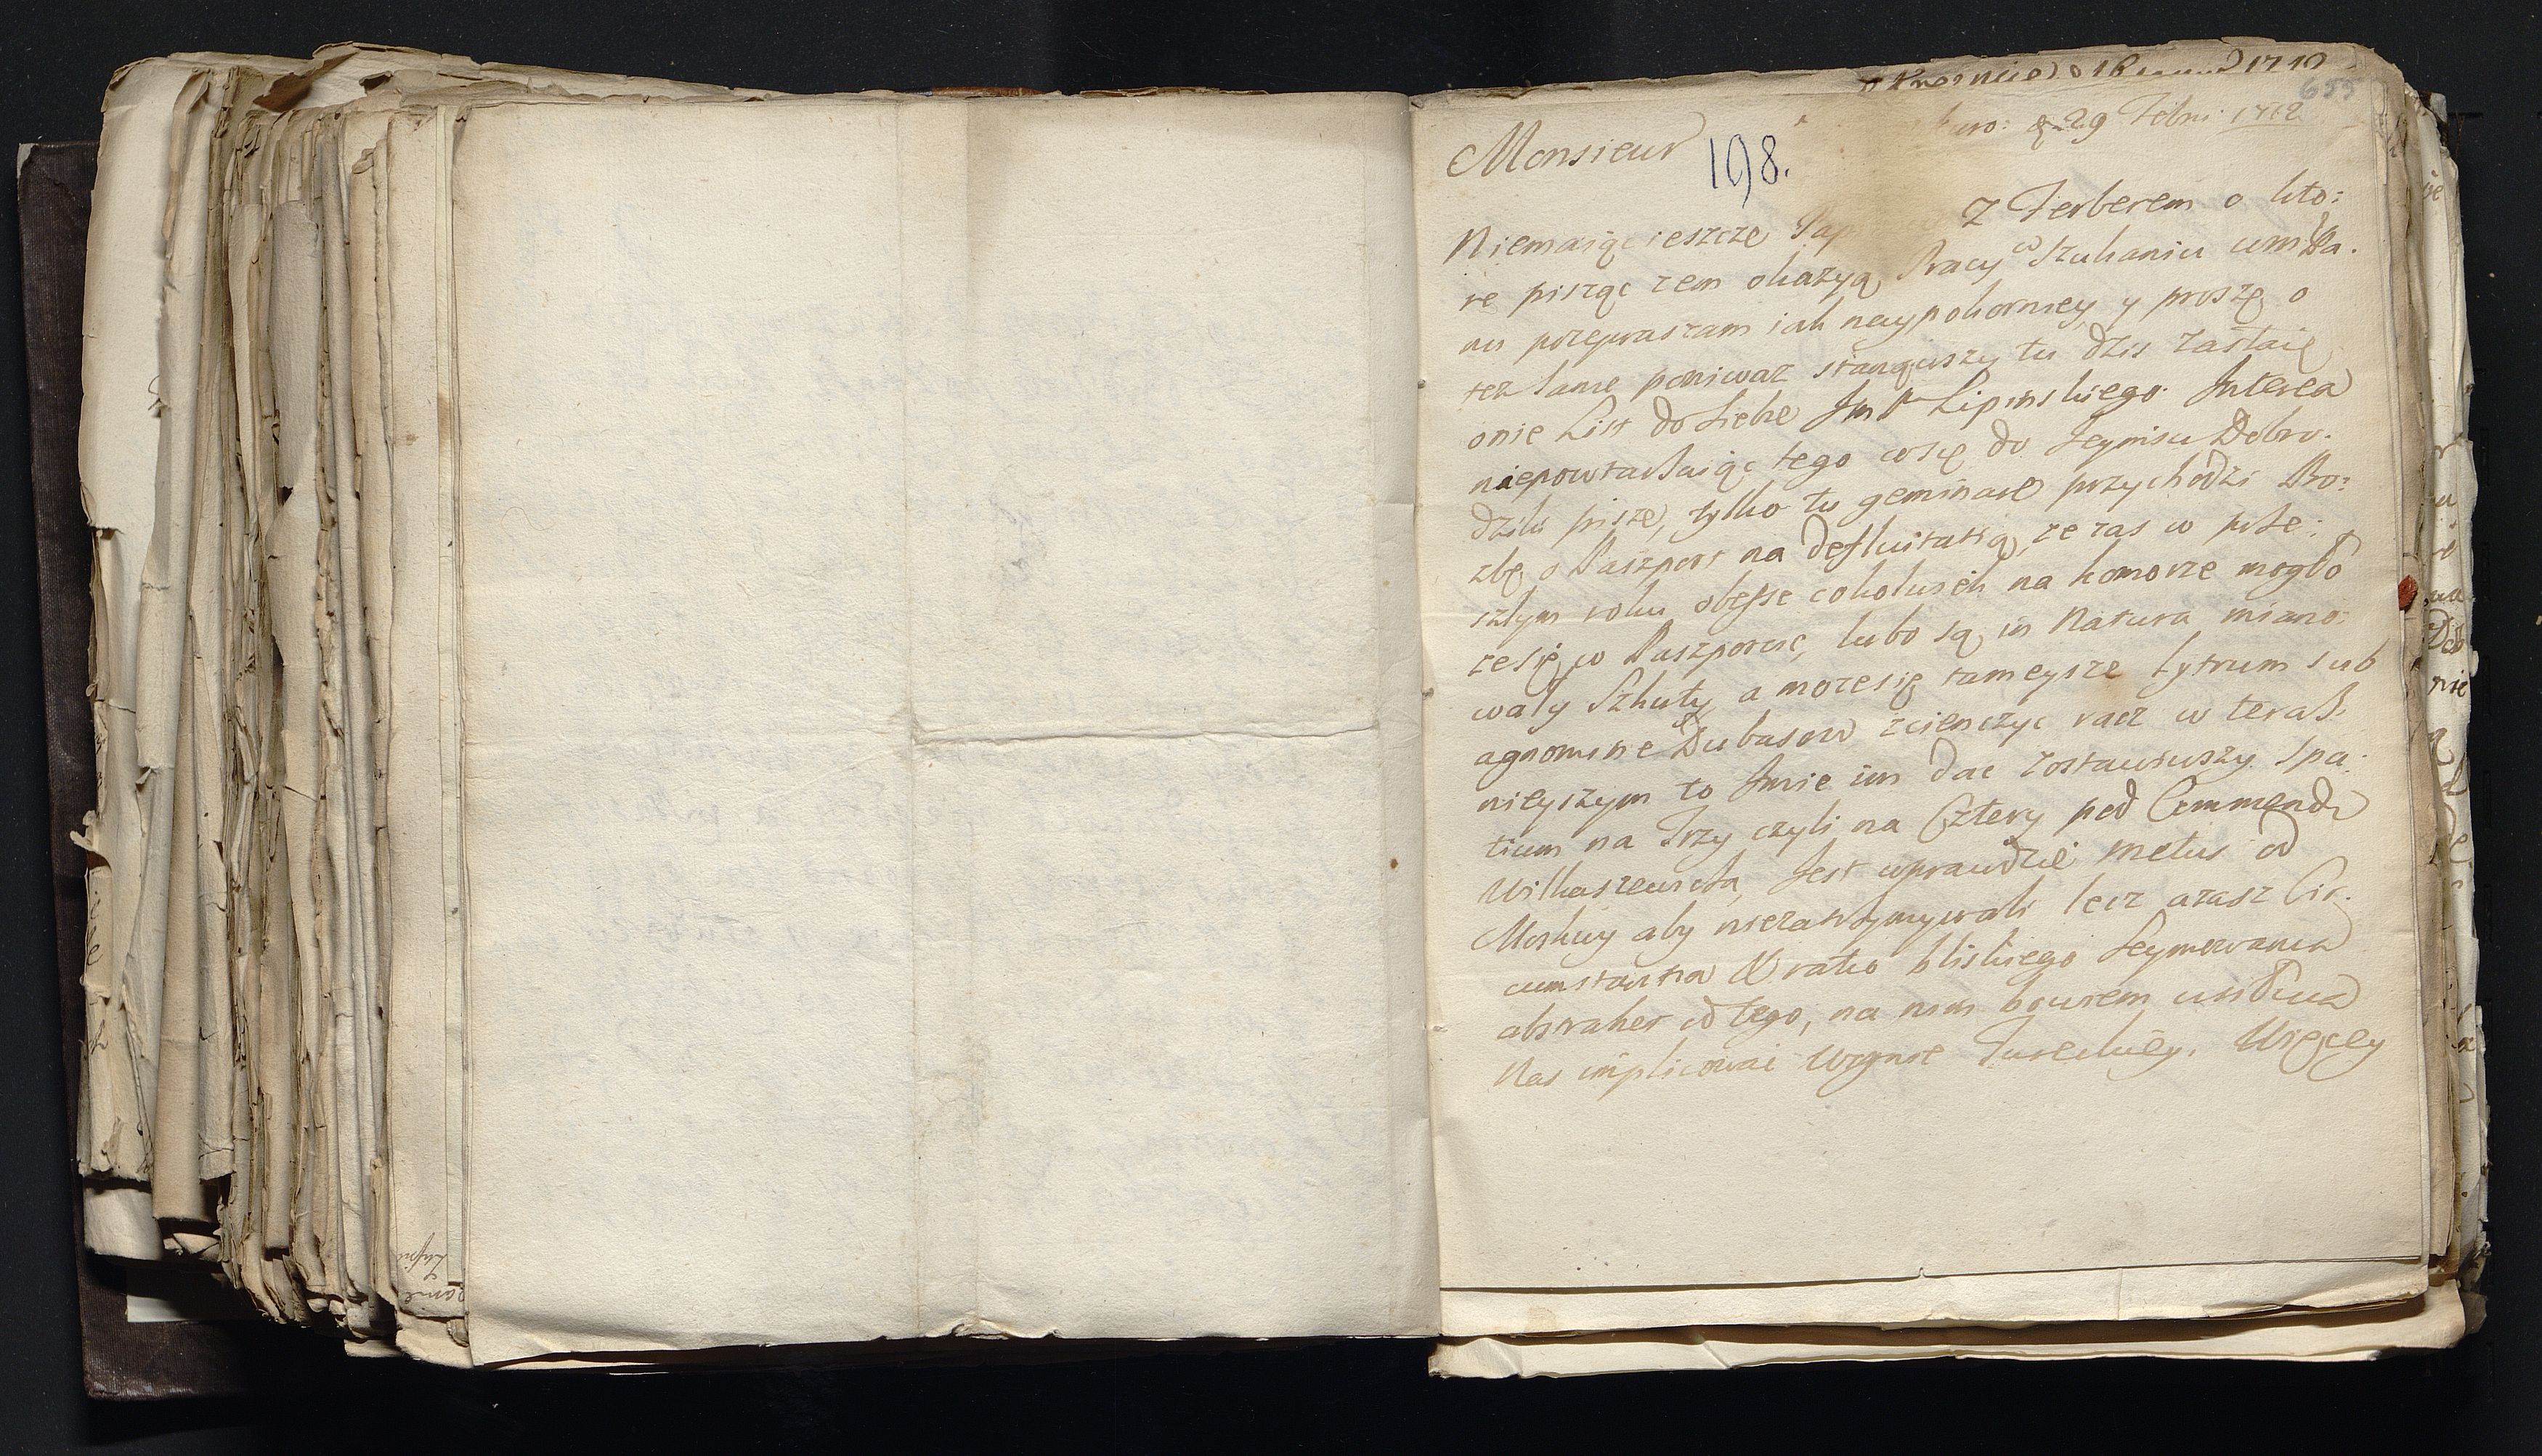 1710
655
29 Febru: 1712
Monsieur
198.
Niemaiąc ieszcze Pap z Ferberem o kto:
re pisząc zem okazyą Pracy w szukaniu umiBa.
nu przepraszam iak naypokorniey y proszę o
tez same poniwaz stanąwszy tu dzis zastaię
onie List do siebie Jm P Lipinskiego. Interea
niepowtarzaiąc tego cosię do Jeymsci Dobro.
dziki pisze, tylko tu geminare przychodzi Pro:
zbę o Paszport na defluitatią, ze zas w prze:
szłym roku obesse cokolwiek na komorze mogło
zesię w Paszporcie, lubo są in Natura miano:
wały Szkuty, a mozesię tameysze Lytrum sub
agnomine Dubasow zcienczyc racz w teraz.
nieyszym to Jmie im dac zostawiwszy Spa:
tium na Trzy czyli na Cztery pod Commendą
Wilkaszewicza, Jest wprawdzie metus od
Moskwy aby niezatrzymywali lecz azasz Cir.
cumstantia & ratio bliskiego Seymowania
abstrahet od tego, na nim bowiem
Nas implicowac Woynie Tureckiey. Więcey